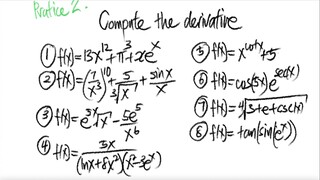 Practice 2.
Compute the derivative
① f(x)=13x^12+π^3+xe^x
② f(x)=(7/x^3)^10+5/∛x+sinx/x
③ f(x)=e^{3x}√x-5e^5/x^6
④ f(x)=5x/((lnx+8x^2)(x^2-3e^x))
⑤ f(x)=x^{cotx}+5
⑥ f(x)=cos(5x)e^{sec(x)}
⑦ f(x)=∜(3+e+csc(x))
⑧ f(x)=tan(sin(e^x))